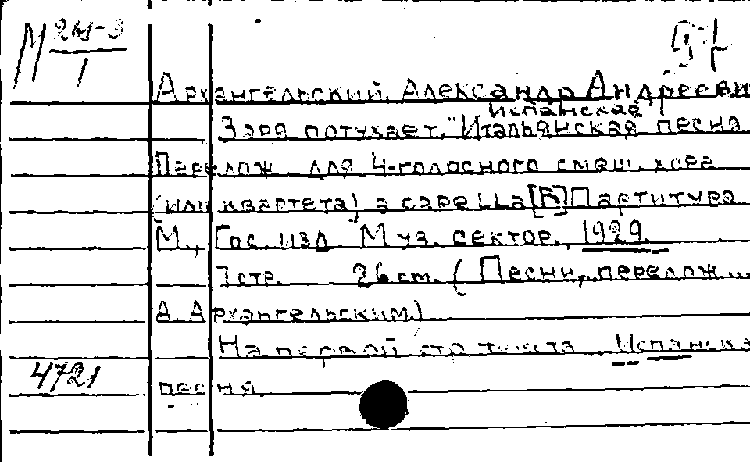 М 241-3/1
57
Архангельский, Александр Андреевич
Испанская
Заря потухает. "Итальянская песня.
Перелож. для 4-голосного смеш. хора
(или квартета) a capella [B] Партитура
М., Гос. изд. Муз. сектор., 1929.
7 стр. 26 cm. (Песни, перелож...
А. Архангельским.)
На первой стр. текста.. Испанска
4721 песня.